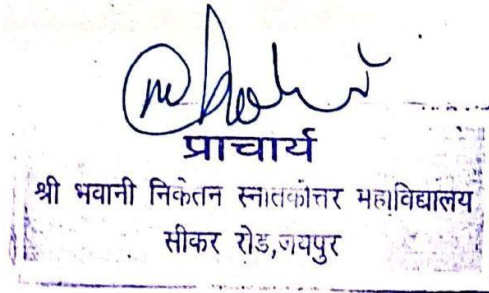 प्राचार्य
श्री भवानी निकेतन स्नातकोत्तर महाविद्यालय
सीकर रोड,जयपुर